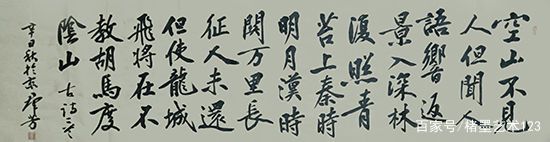 空山不見
人但聞人
語響返
景入深林
復照青
苔上秦時
明月漢時
関万里長
征人未還
但使龍城
飛將在不
教胡馬度
陰山 古詩二
辛丑秋於京 芳
百家号/楮墨艺术123